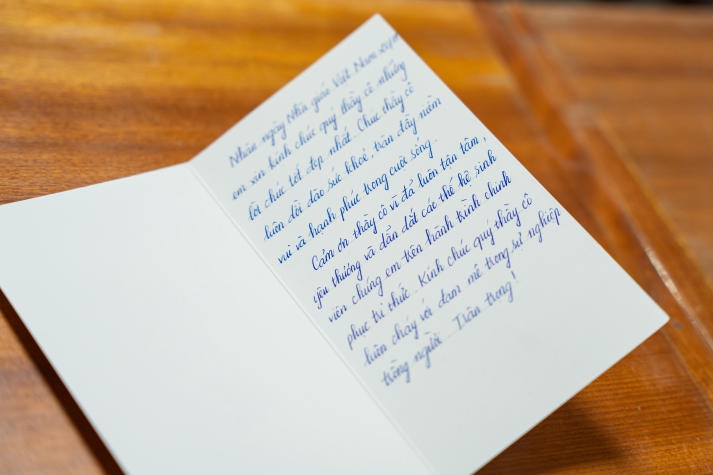 Nhân ngày Nhà giáo Việt Nam
em xin kính chúc quý thầy cô những
lời chúc tốt đẹp nhất. Chúc thầy cô
luôn dồi dào sức khoẻ, tràn đầy niềm
vui và hạnh phúc trong cuộc sống.
Cảm ơn thầy cô vì đã luôn tận tâm,
yêu thương và dẫn dắt các thế hệ sinh
viên chúng em trên hành trình chinh
phục tri thức. Kính chúc quý thầy cô
luôn cháy với đam mê trong sự nghiệp
trồng người. Trân trọng!